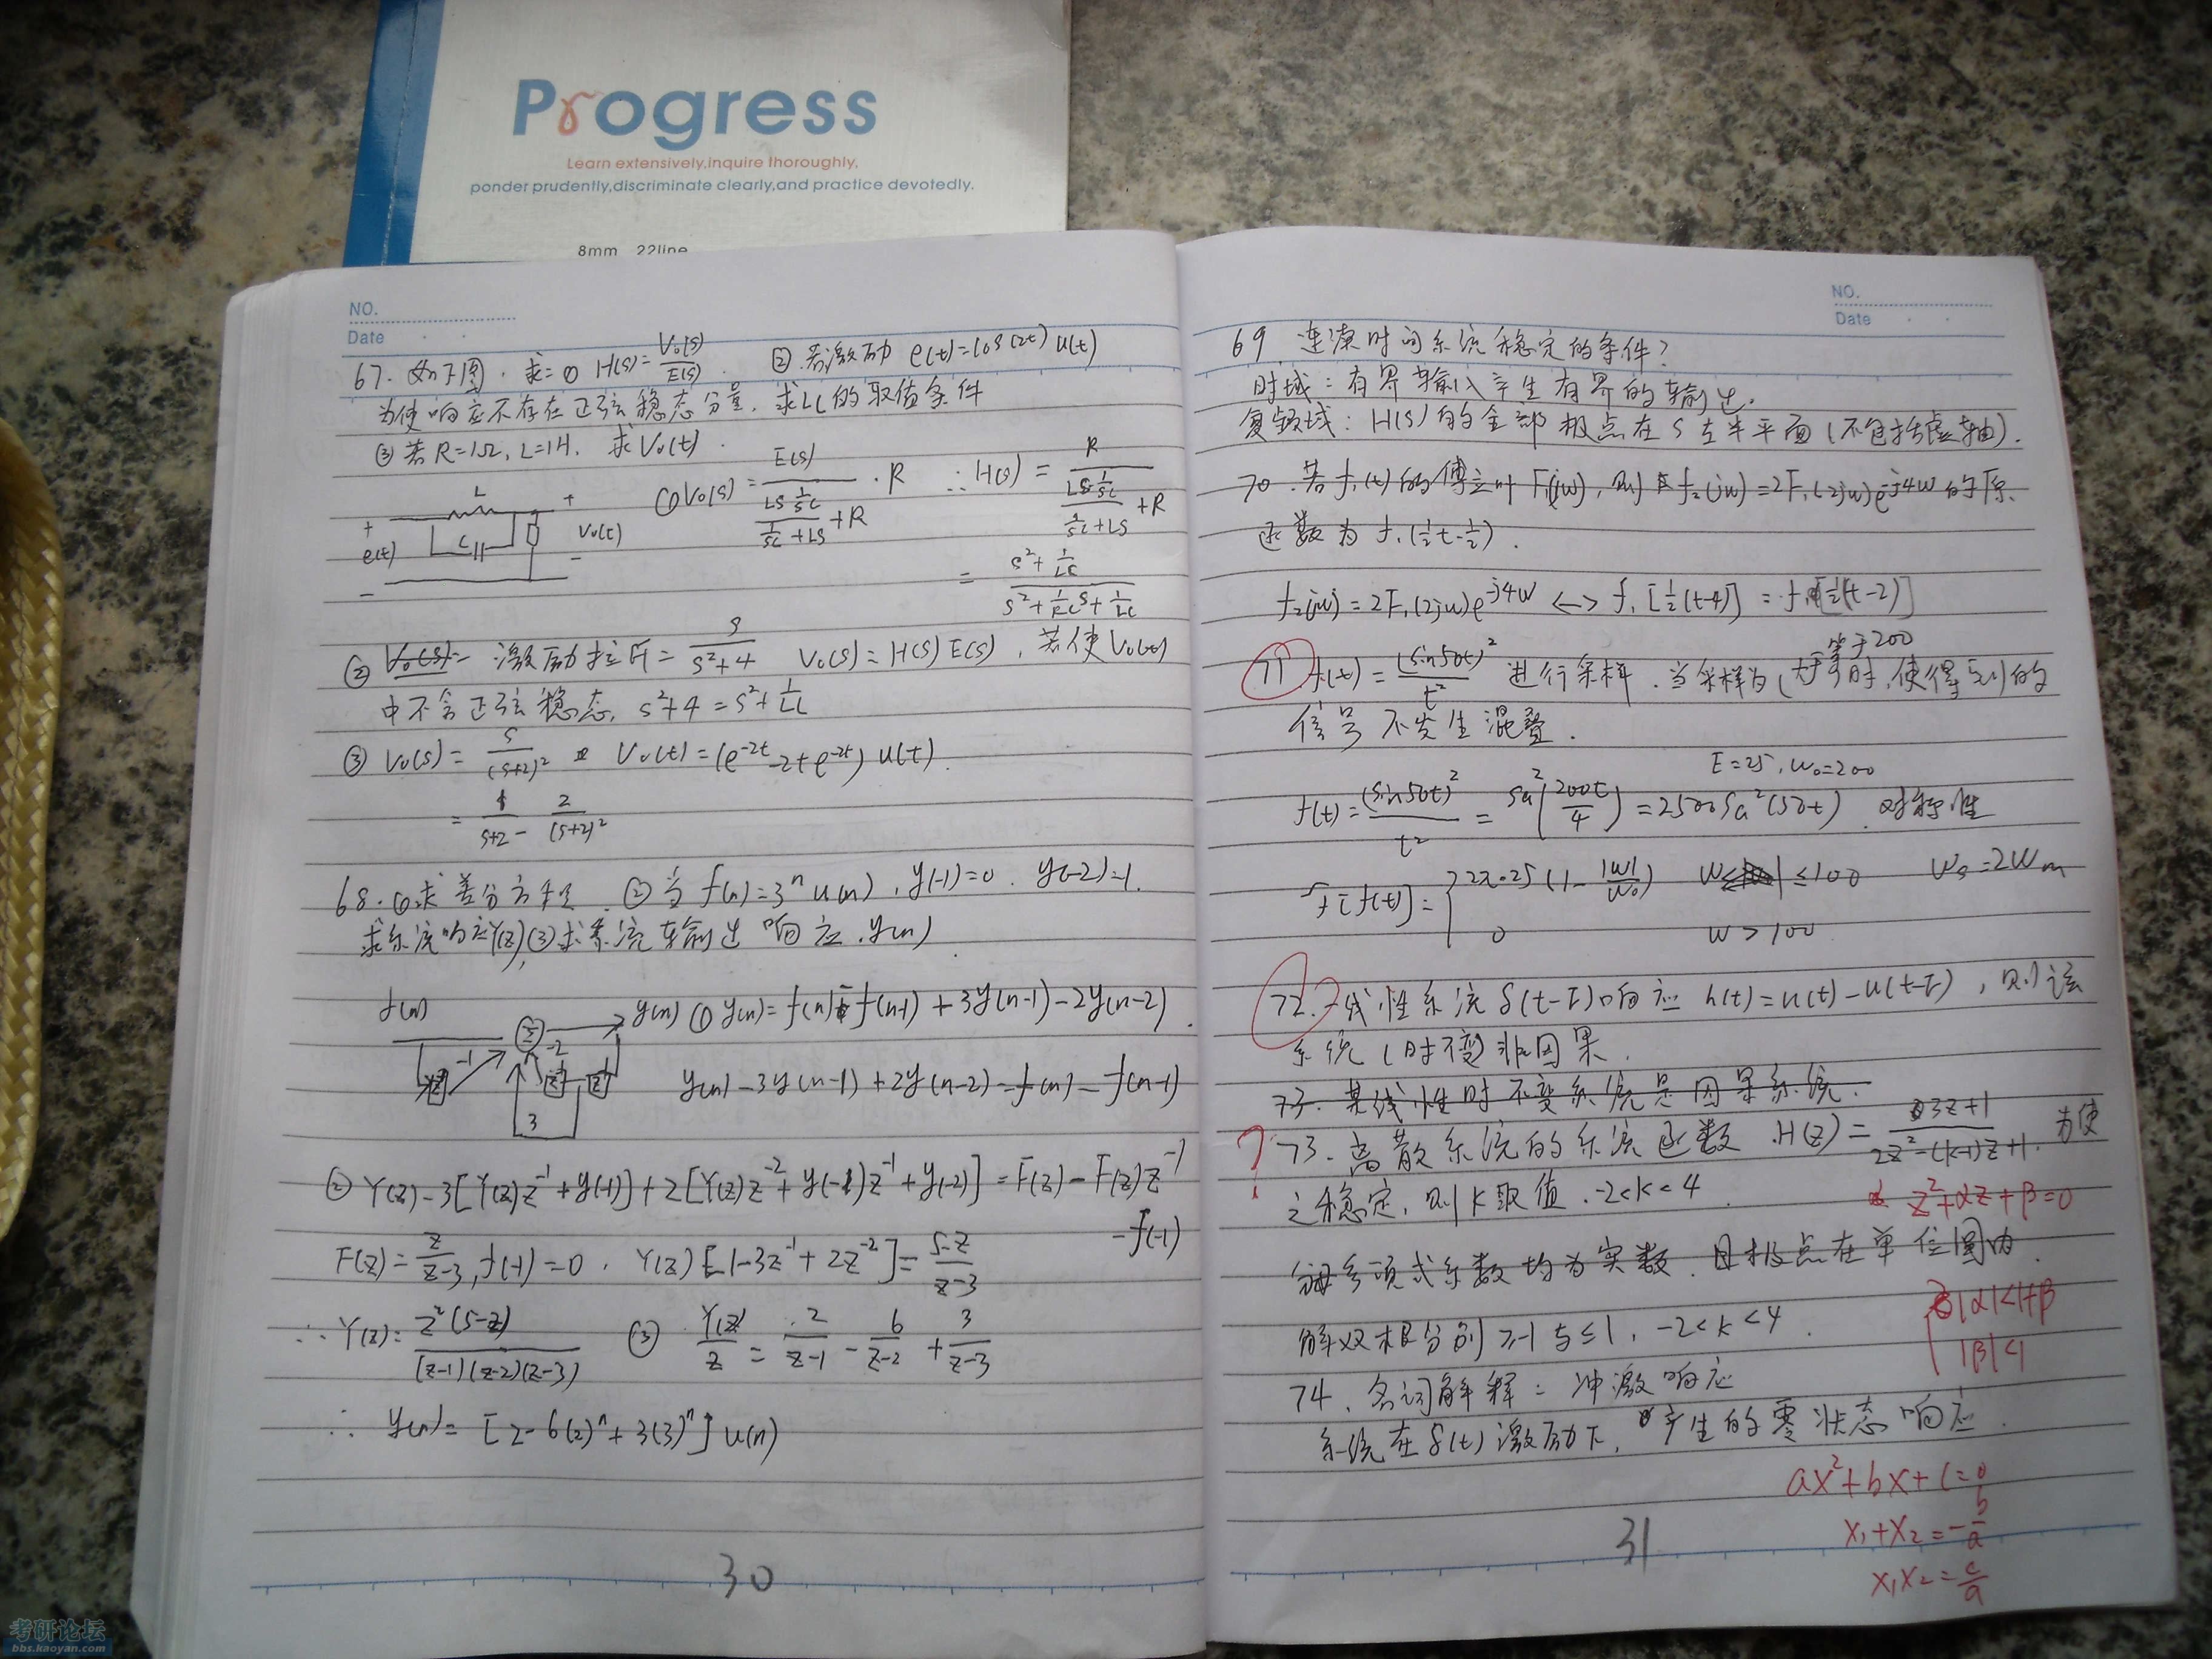 Progress
Learn extensively,inquire thoroughly,
ponder prudently,discriminate clearly,and practice devotedly.
8mm 22line
NO.
Date
67. 如下图. 求: ① H(s)=V₀(s)/E(s). ②.若激励 e(t)=cos(2t) u(t)
为使响应不存在正弦稳态分量, 求LC的取值条件
③ 若 R=1Ω, L=1H, 求 V₀(t).
L
C
+ e(t) −
+ V₀(t) −
① V₀(s) = E(s) / (LS 1/SC / (1/SC + LS) + R) · R ∴ H(s) = R / (LS 1/SC / (1/SC + LS) + R)
= (s² + 1/LC) / (s² + 1/RC s + 1/LC)
② V₀(s)= 激励拉氏 = s/(s²+4) V₀(s) = H(s) E(s), 若使 V₀(t)
中不含正弦稳态, s²+4 = s²+1/LC
③ V₀(s) = s/(s+2)² V₀(t) = (e^-2t - 2t e^-2t) u(t)
= 1/(s+2) - 2/(s+2)²
68. ①求差分方程 ② 当 f(n)=3ⁿ u(n), y(-1)=0. y(-2)=1.
求系统响应Y(z) ③求系统输出响应.y(n)
f(n) -1 Σ -2 3 y(n)
① y(n) = f(n) - f(n-1) + 3y(n-1) - 2y(n-2).
y(n) - 3y(n-1) + 2y(n-2) = f(n) - f(n-1)
② Y(z) - 3[Y(z)z⁻¹ + y(-1)] + 2[Y(z)z⁻² + y(-1)z⁻¹ + y(-2)] = F(z) - F(z)z⁻¹
- f(-1)
F(z) = z/(z-3), f(-1) = 0. Y(z)[1-3z⁻¹ + 2z⁻²] = (5-z)/(z-3)
∴ Y(z) = z²(5-z) / (z-1)(z-2)(z-3) ③ Y(z)/z = 2/(z-1) - 6/(z-2) + 3/(z-3)
∴ y(n) = [2 - 6(2)ⁿ + 3(3)ⁿ] u(n)
30
NO.
Date
69 连续时间系统稳定的条件?
时域: 有界输入产生有界的输出.
复频域: H(s) 的全部极点在 S 左半平面 (不包括虚轴).
70. 若 f₁(t) 的傅立叶 F₁(jw), 则 f₂(jw) = 2F₁(2jw)e^-j4w 的原
函数为 f₁(½t-½).
f₂(jw) = 2F₁(2jw)e^-j4w ↔ f₁[½(t-4)] = f₁[½(t-2)]
等于200
71 f(t) = (sin50t)²/t² 进行采样. 当采样为(大于 时, 使得到的
信号不发生混叠.
E=25, w₀=200
f(t) = (sin50t)²/t² = Sa²(200t/4) = 2500Sa²(50t). 对称性
F[f(t)] = { 2π·25 (1 - |w|/w₀) w ≤100 Ws=2Wm
0 w > 100
72. 一线性系统 δ(t-τ) 响应 h(t) = u(t) - u(t-τ), 则该
系统 (时不变) 非因果.
73. 某线性时不变系统是因果系统.
? 73. 离散系统的系统函数 H(z) = (3z+1)/(2z²-(k-1)z+1). 为使
之稳定, 则 k 取值. -2<k<4
z²+αz+β=0
分母多项式系数均为实数. 且极点在单位圆内
|α|<1+β
解双根分别 ≥-1 与 ≤1, -2<k<4.
|β|<1
74. 名词解释: 冲激响应
系统在 δ(t) 激励下, 产生的零状态响应.
ax²+bx+c=0
x₁+x₂=-b/a
x₁x₂=c/a
31
考研论坛
bbs.kaoyan.com